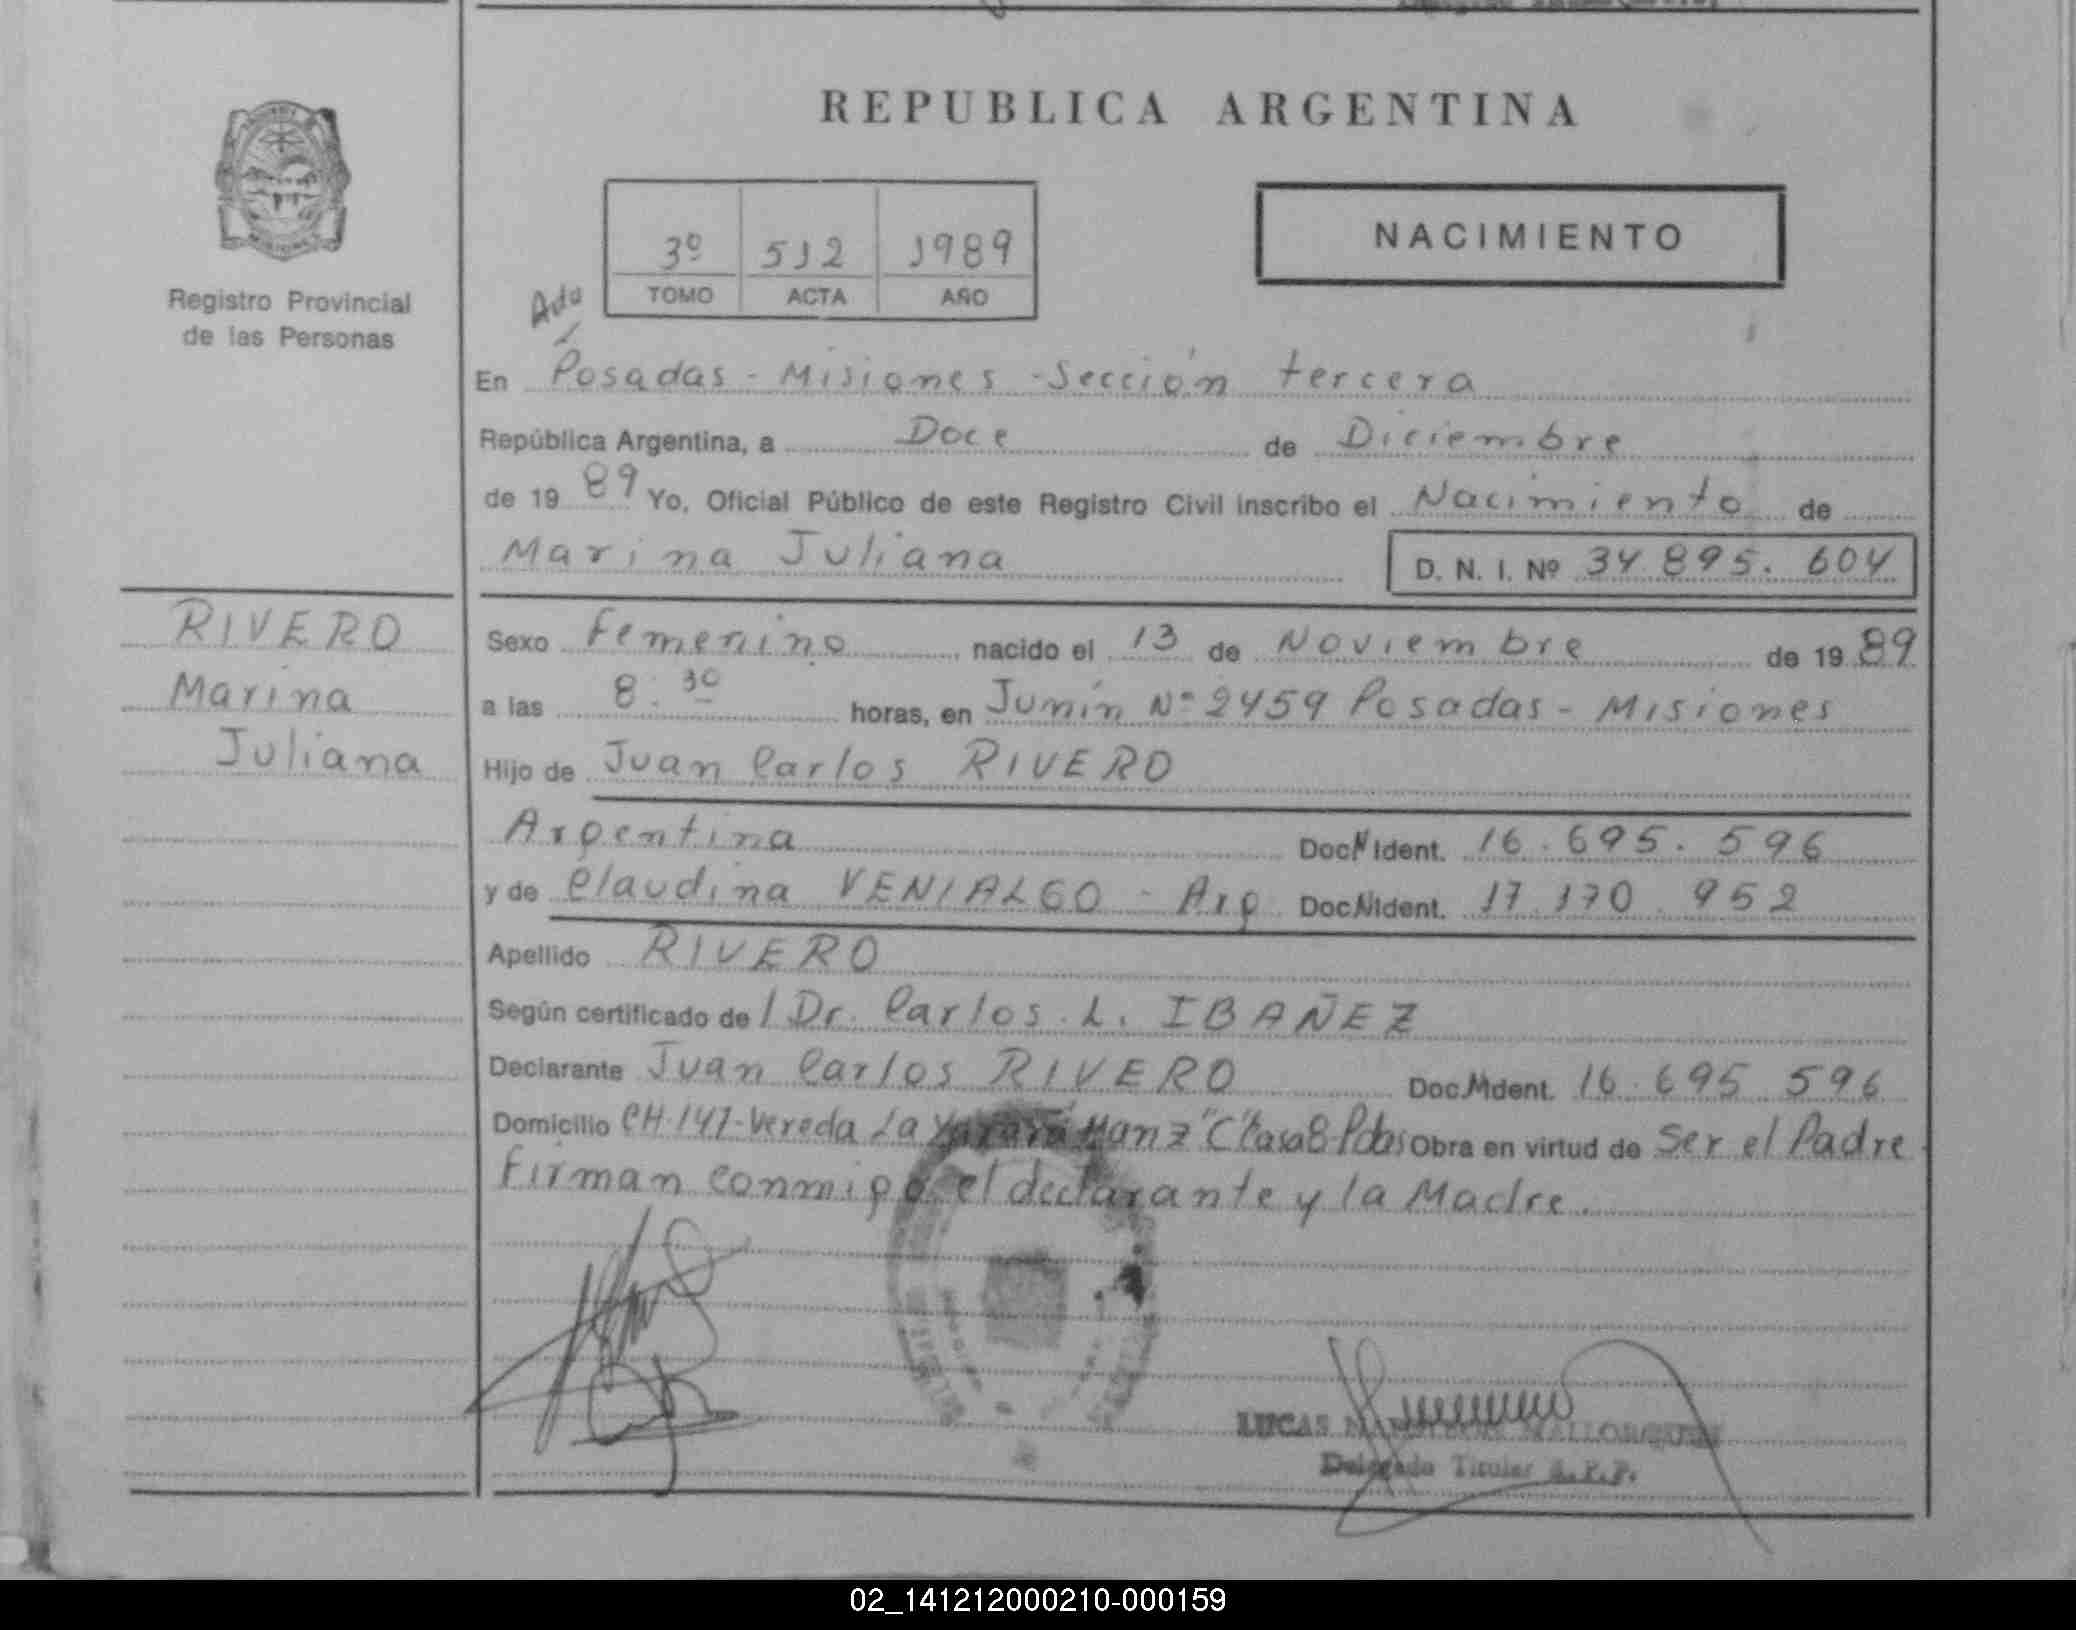 REPUBLICA ARGENTINA
NACIMIENTO
3º 512 1989
TOMO ACTA AÑO
Registro Provincial
de las Personas
Ada
En Posadas - Misiones - Sección tercera
República Argentina, a Doce de Diciembre
de 19 89 Yo, Oficial Público de este Registro Civil inscribo el Nacimiento de
Marina Juliana D. N. I. Nº 34.895.604
RIVERO
Marina
Juliana
Sexo Femenino nacido el 13 de Noviembre de 19 89
a las 8:30 horas, en Junín Nº 2459 Posadas - Misiones
Hijo de Juan Carlos RIVERO
Argentina Doc N Ident. 16.695.596
y de Claudina VENIALGO - Arg Doc N Ident. 17.170.952
Apellido RIVERO
Según certificado de / Dr. Carlos L. IBAÑEZ
Declarante Juan Carlos RIVERO Doc N Ident. 16.695.596
Domicilio CH-147-Vereda La Yarará Manz "C" Casa 8-Pdas Obra en virtud de Ser el Padre
Firman conmigo el declarante y la Madre.
LUCAS MALLORQUIN
Delegado Titular R.P.P.
02_141212000210-000159